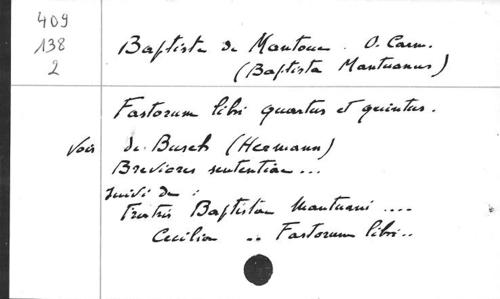 409
138
2
Baptista de Mantoue. O. Carm.
(Baptista Mantuanus)
Fastorum libri quartus et quintus.
Voir de Busch (Hermann)
Breviores sententiae ...
suivi de :
Fratris Baptistae Mantuani ....
Cecilia .. Fastorum libri..